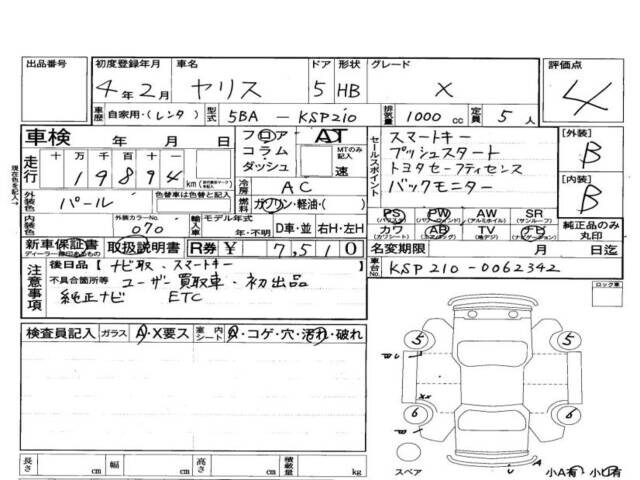 出品番号 初度登録年月 車名 ドア 形状 グレード 評価点
4年2月 ヤリス 5 HB X 4
車歴 自家用・(レンタ) 型式 5BA - KSP210 排気量 1000 cc 定員 5 人
車検 年 月 日 フロア AT セールスポイント スマートキー [外装]
コラム・ MTのみ記入 プッシュスタート B
現在色を記入→ 走行 十 万 千 百 十 一 ダッシュ 速 トヨタセーフティセンス
1 9 8 9 4 km 冷房 AC バックモニター [内装]
外装色 パール 色替車は色替前の色 燃料 ガソリン・軽油・( ) B
PS (パワステ) PW (パワーウィンド) AW (アルミホイル) SR (サンルーフ)
内装色 外装カラーNo. 070 輸入車 モデル年式 年・不明 D車・並 右H・左H カワ (カワシート) AB (エアバッグ) TV (地デジ) ナビ (ナビゲーション) 純正品のみ丸印
新車保証書 ディーラー印あるもの 取扱説明書 R券 ¥ 7,510 名変期限 月 日迄
注意事項 後日品【 ナビ取、スマートキー 車台No. KSP210-0062342
不具合箇所等 ユーザー買取車・初出品 ロック車
純正ナビ ETC
検査員記入 ガラス A・X要ス 室内シート A・コゲ・穴・汚れ・破れ
5 5
W
XX
6 6
W
U A
長さ cm 幅 cm 高さ cm 積載量 kg スペア 小A有 小U有